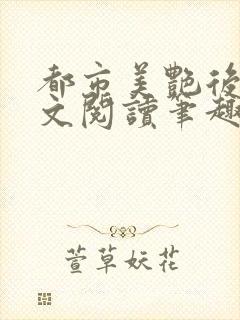 都市美艷後
文閱讀筆趣
萱草妖花